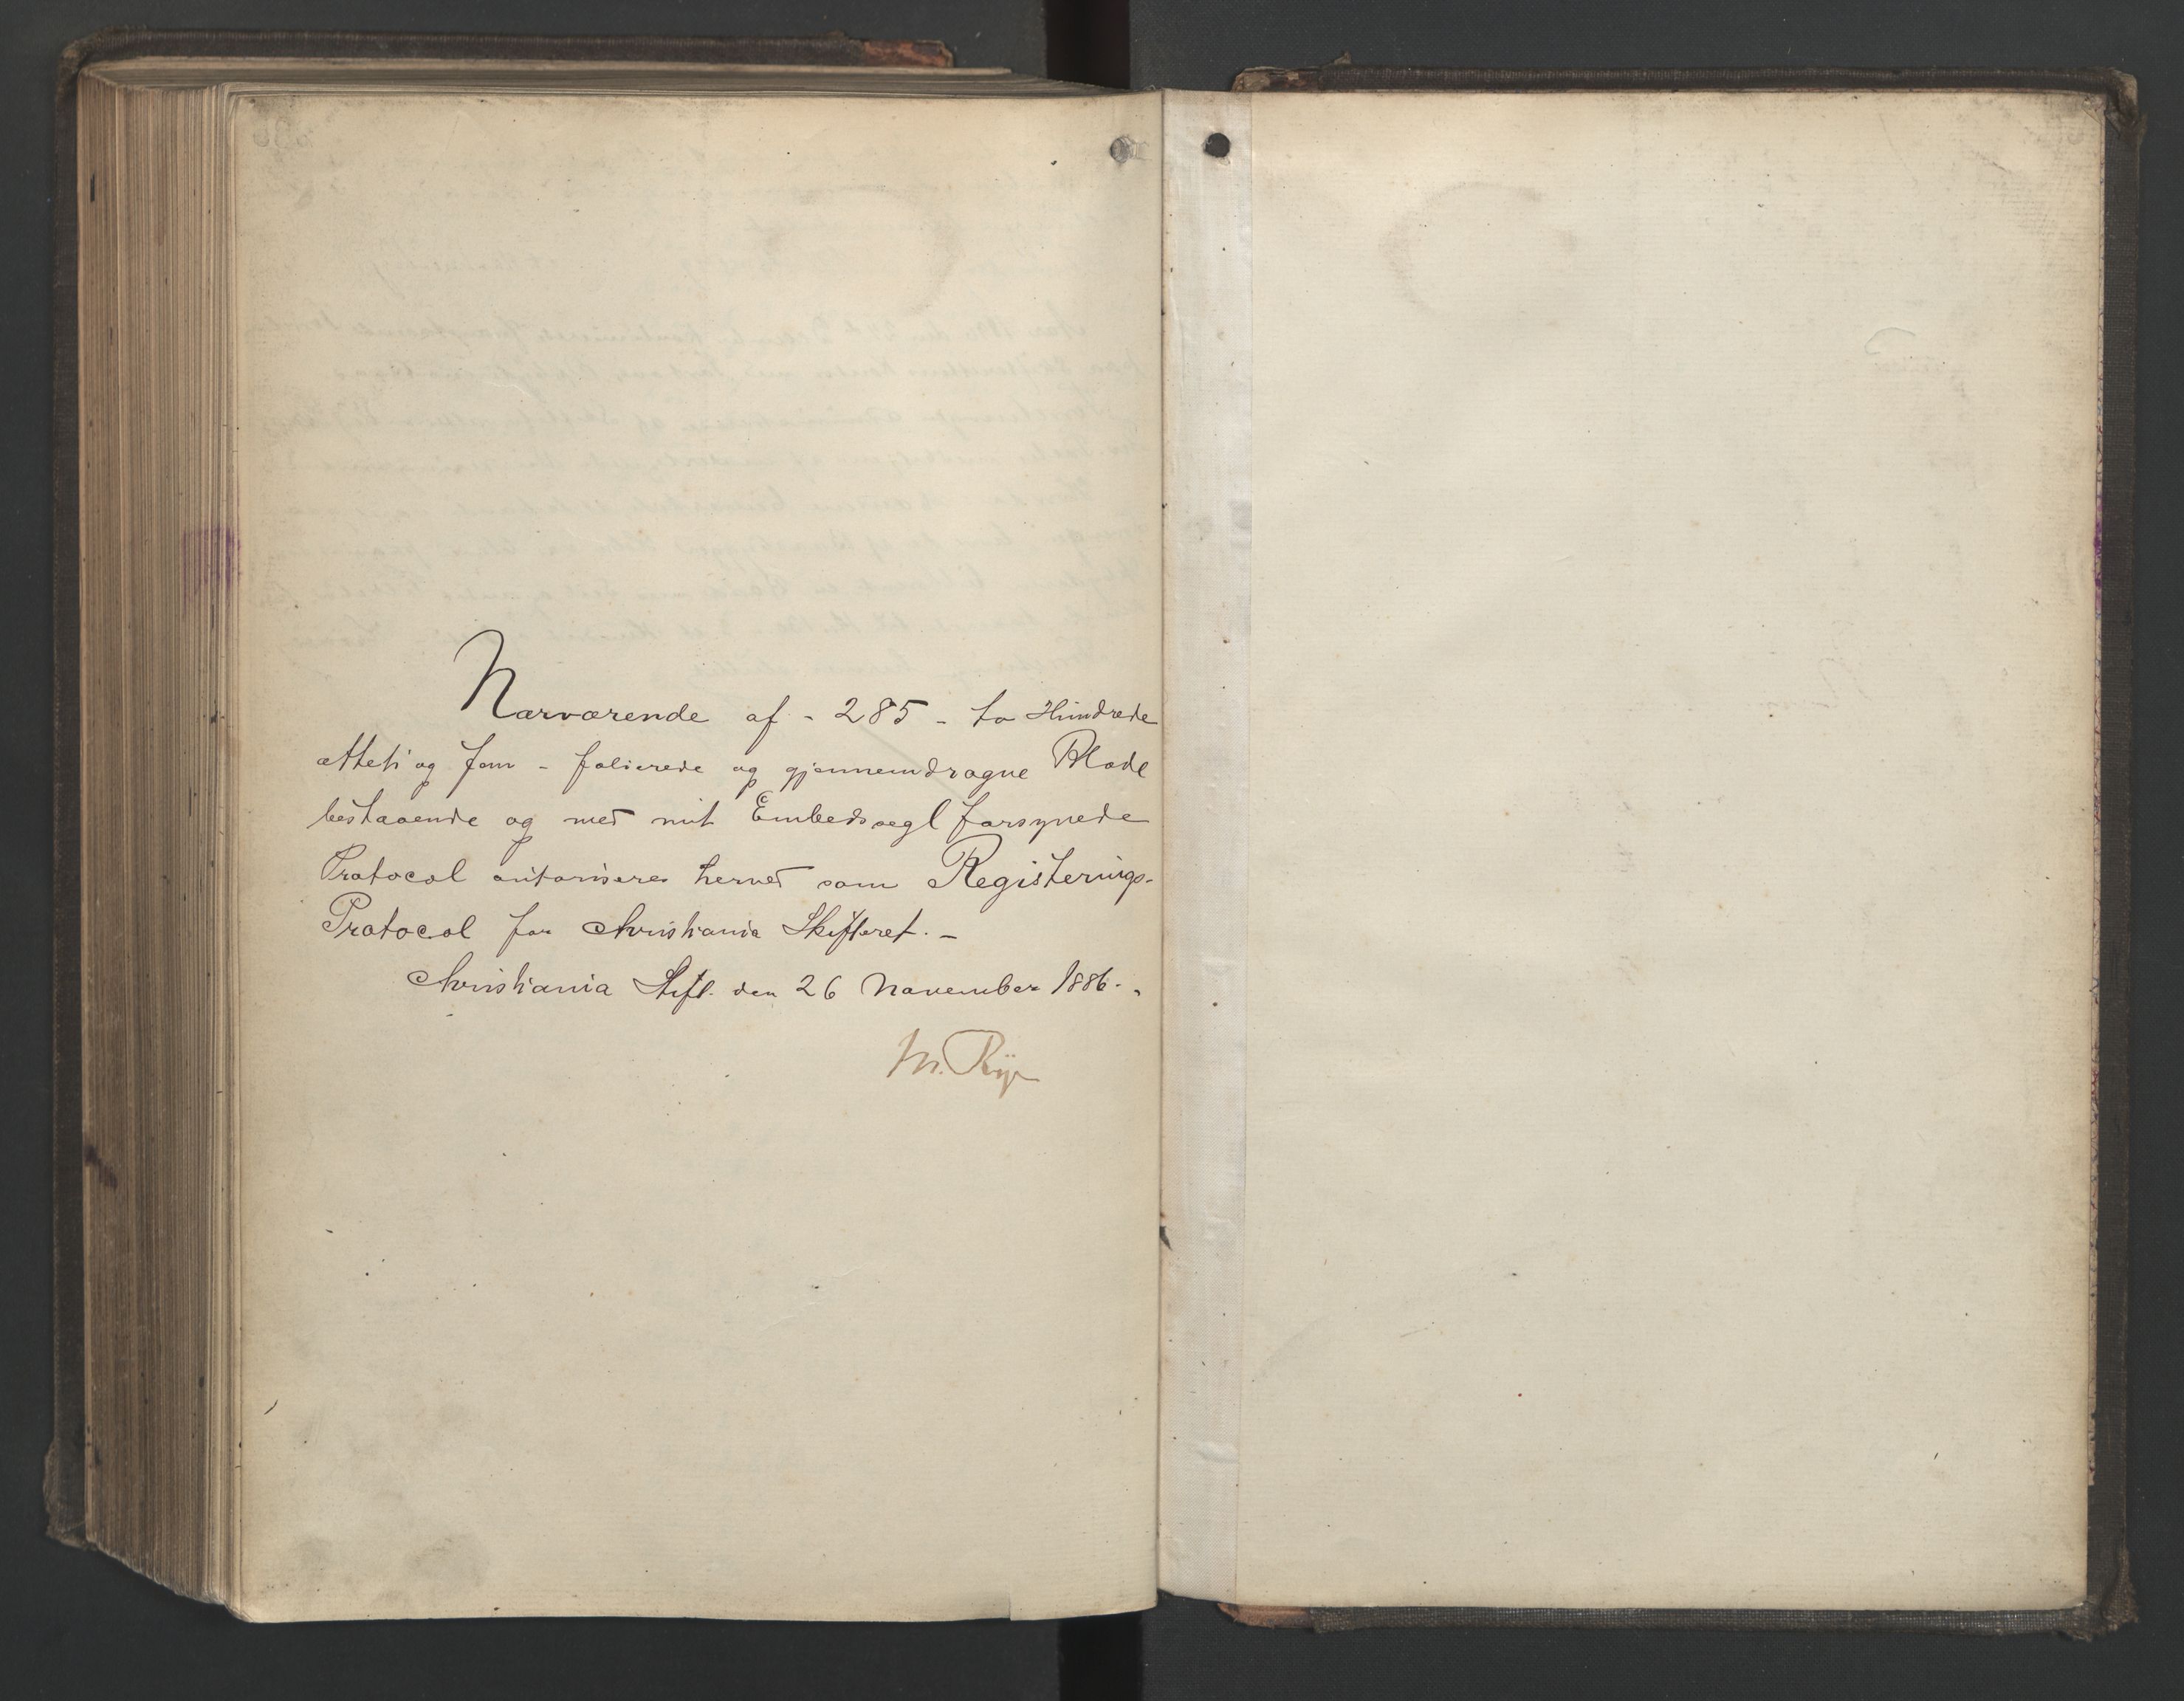 Nærværende af - 285 - to Hundrede
otteti og fem - folierede og gjennemdragne Blade
bestaaende og med mit Embedssegl forsynede
Protocol autoriseres herved som Registerings-
Protocol for Christiania Skifteret. -
Christiania Skift. den 26 November 1886. -
M. Rye